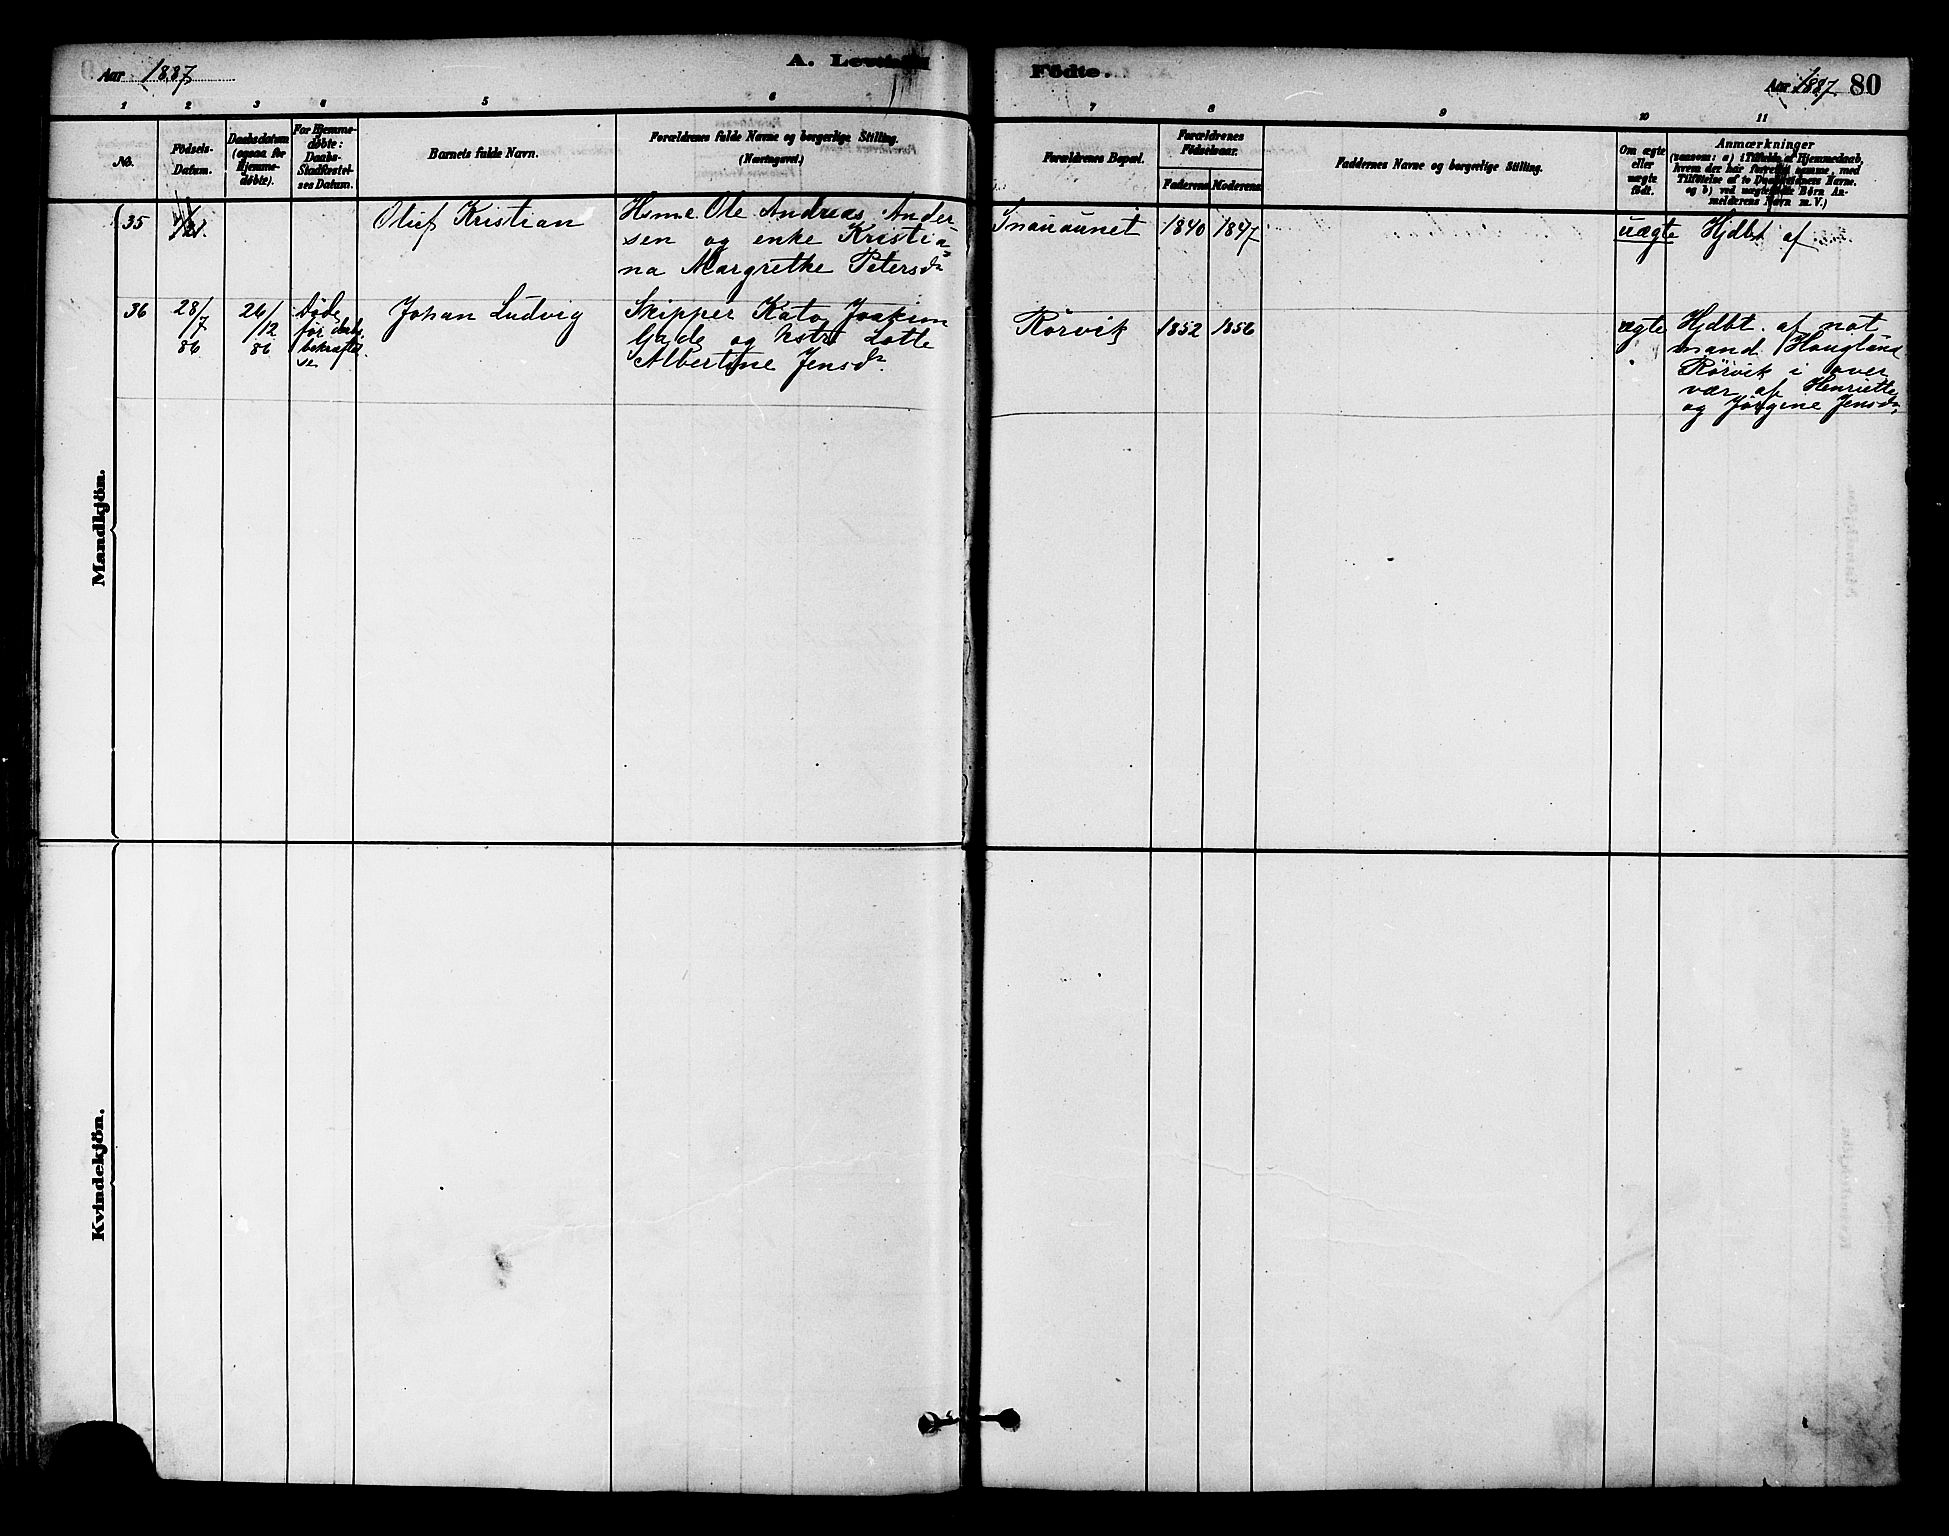 Aar 1887
A. Levende
Födte.
Aar 1887. 80
1 2 3 4 5 6 7 8 9 10 11
No.
Födsels-
Datum.
Daabsdatum
(ogsaa for
Hjemme-
döbte).
For Hjemme-
døbte:
Daabs-
Stadfæstel-
ses Datum.
Barnets fulde Navn.
Forældrenes fulde Navne og borgerlige Stilling.
(Næringsvei.)
Forældrenes Bopæl.
Forældrenes
Födselsaar.
Faderens Moderens
Faddernes Navne og borgerlige Stilling.
Om ægte
eller
uægte
födt.
Anmærkninger
(saasom: a) i Tilfælde af Hjemmedaab,
hvem der har forrettet samme, med
Tilføielse af to Daabsvidners Navne.
og b) ved uægteskabt Börn An-
melderens Navn m. V.)
Mandkjön.
35
Oluf Kristian
Hsmd Ole Andreas Ander-
sen og enke Kristia
na Margrethe Petersdr
Snauaunet
1840 1847
uægte
Hjdbt af
36
28/
7
86
26/
12
86
Døde
før daabs
bekræftel
se
Johan Ludvig
Skipper Kato Joakim
Gade og hstr Lotte
Albertine Jensdr.
Rörvik
1852 1856
ægte
Hjdbt. af not
mand Haugland
Rörvik i over
vær af Henriette
og Jørgine Jensdr
Kvindekjön.